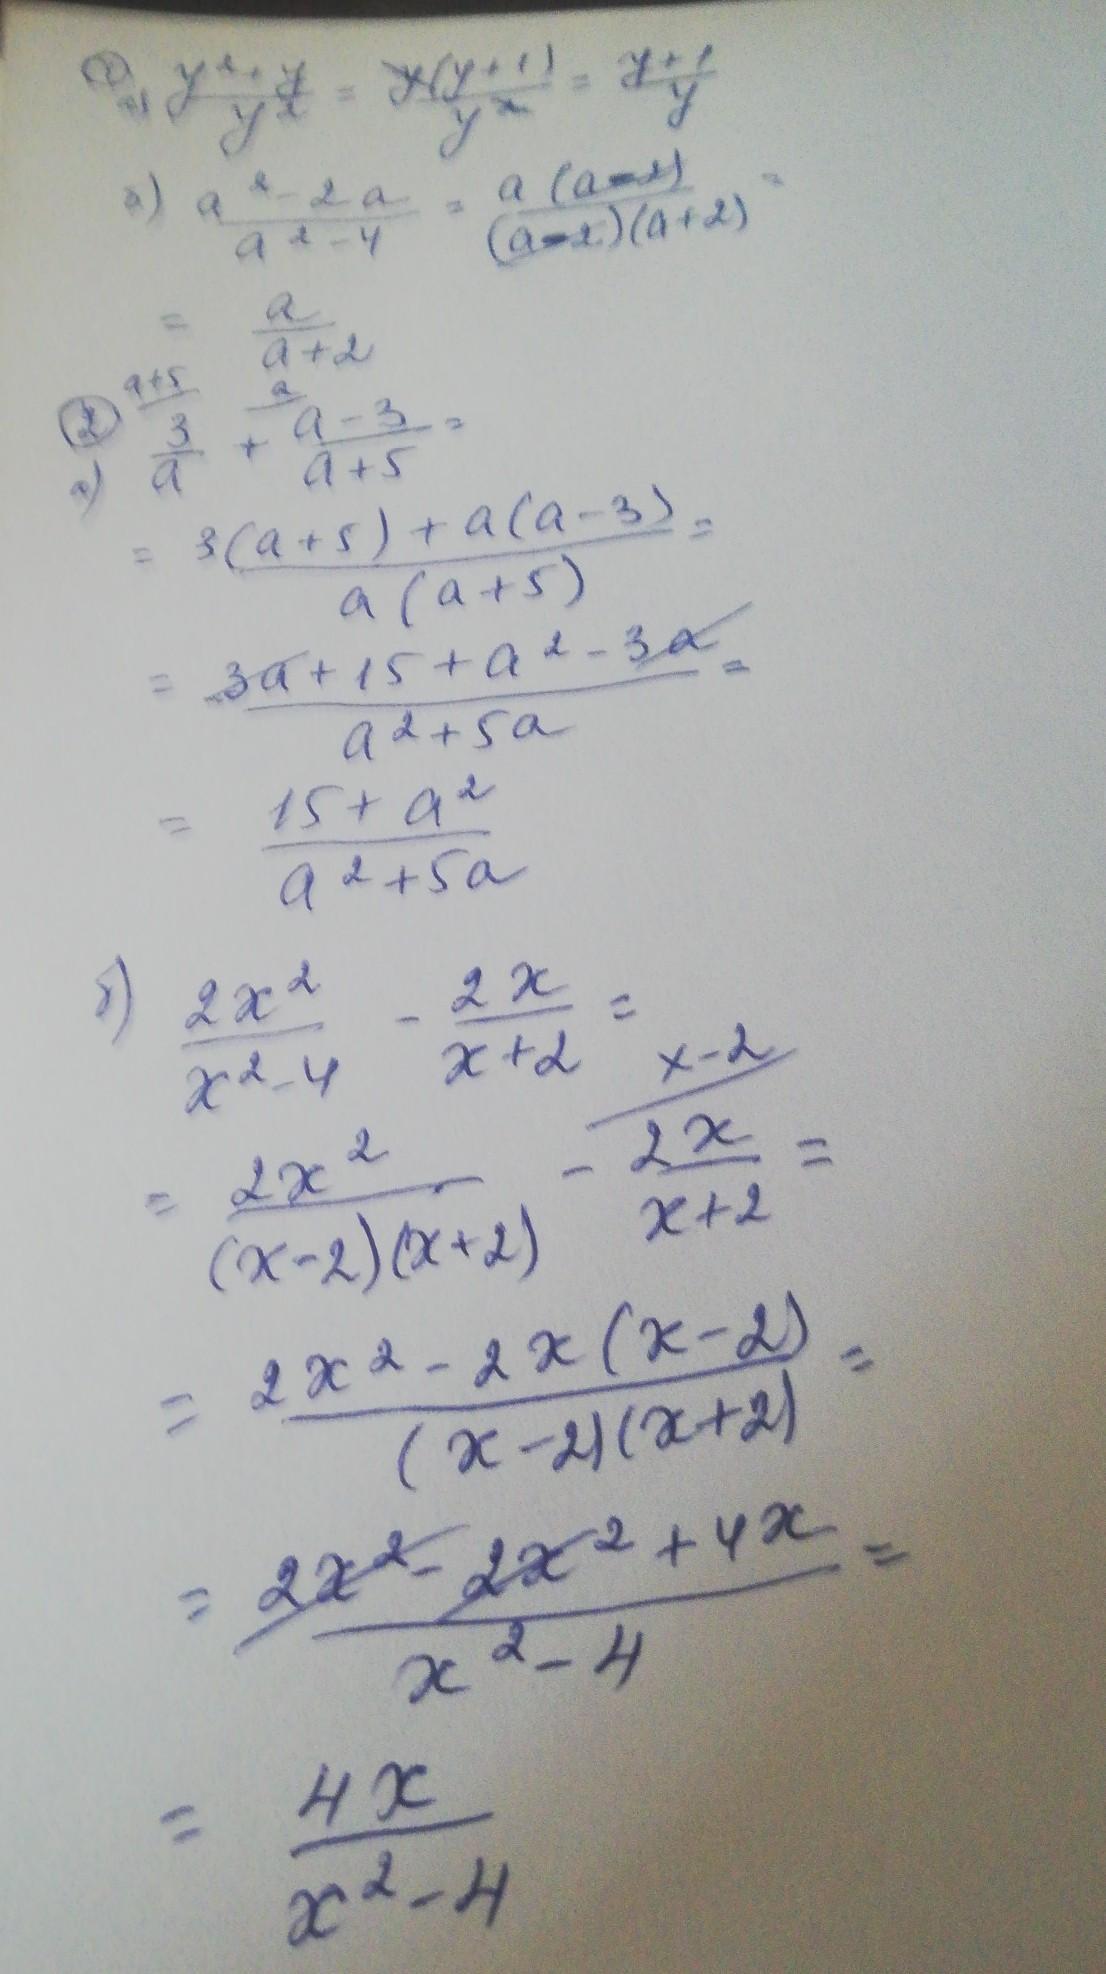 ① а) y²+y/y² = y(y+1)/y² = y+1/y
б) a²-2a/a²-4 = a(a-2)/(a-2)(a+2) =
= a/a+2
② a+5 a
а) 3/a + a-3/a+5 =
= 3(a+5)+a(a-3)/a(a+5) =
= 3a+15+a²-3a/a²+5a =
= 15+a²/a²+5a
б) 2x²/x²-4 - 2x/x+2 =
x-2
= 2x²/(x-2)(x+2) - 2x/x+2 =
= 2x²-2x(x-2)/(x-2)(x+2) =
= 2x²-2x²+4x/x²-4 =
= 4x/x²-4